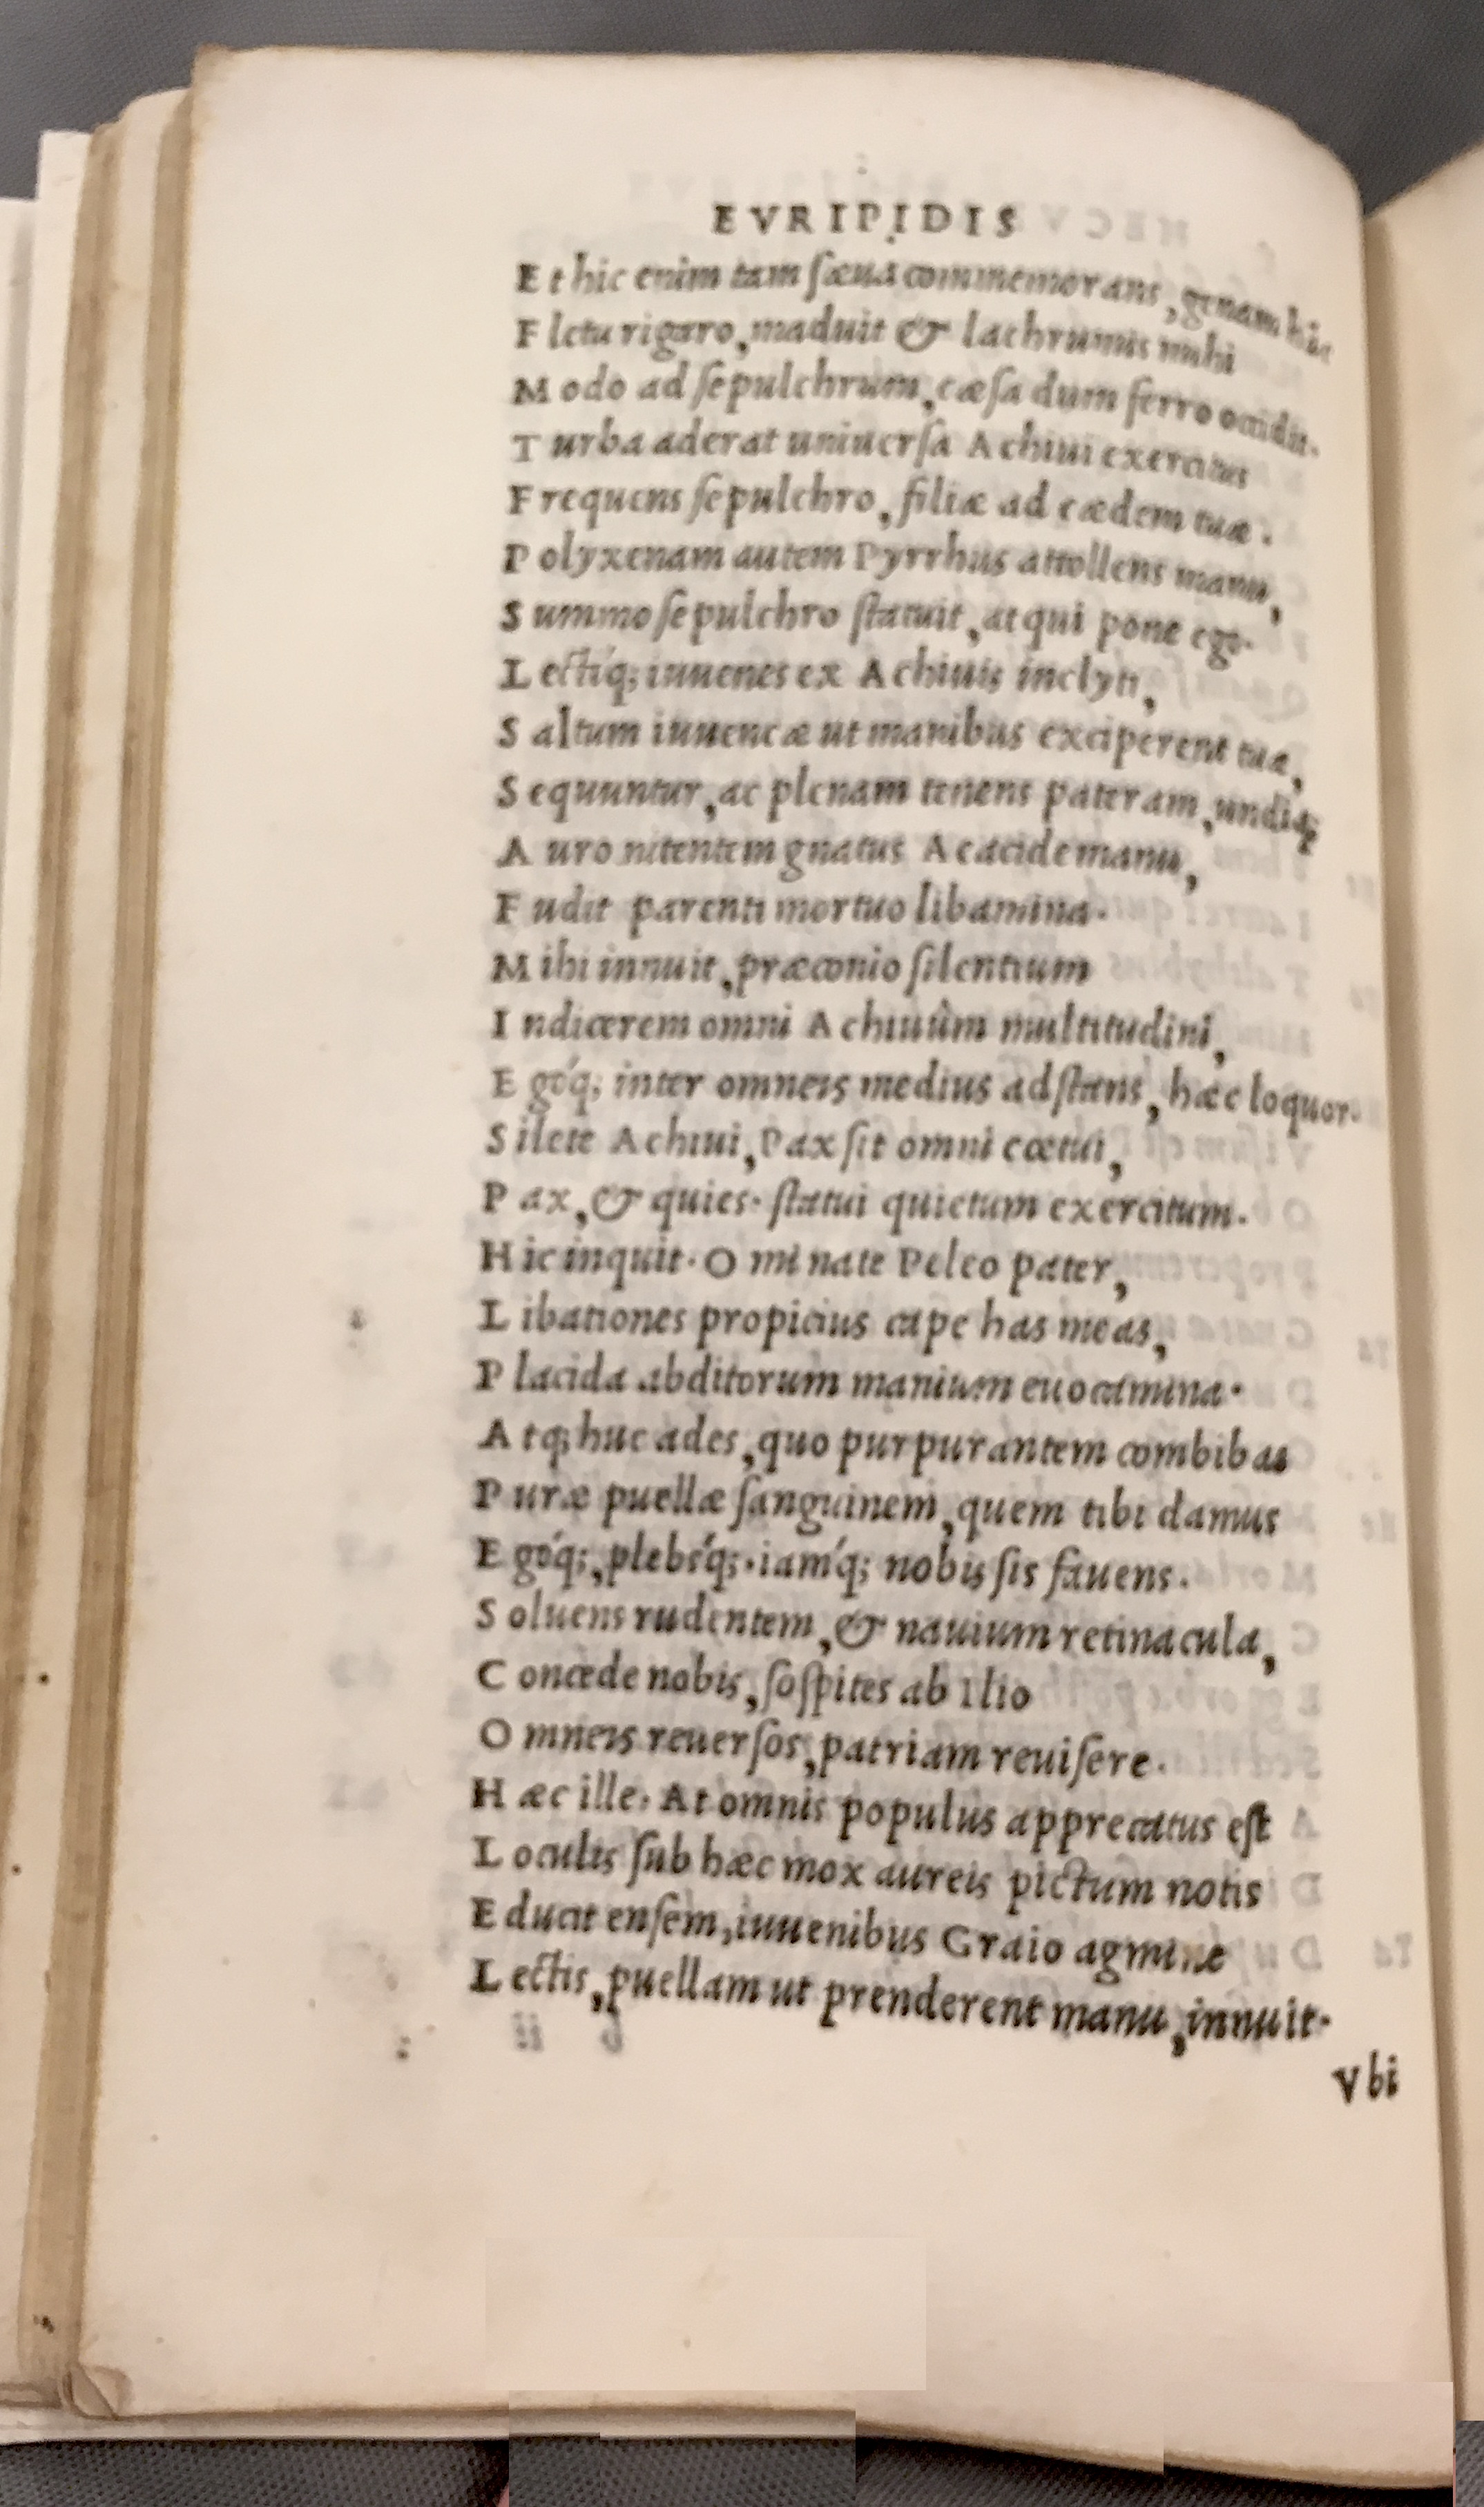 EVRIPIDIS
Et hic enim tam ſæua commemorans, genam hic
Fletu rigaro, maduit & lachrumis mihi
Modo ad ſepulchrum, cæſa dum ferro occidit.
Turba aderat uniuerſa Achiui exercitus
Frequens ſepulchro, filiæ ad cædem tuæ.
Polyxenam autem Pyrrhus attollens manu,
Summo ſepulchro ſtatuit, at qui pone ego.
Lectíq; iuuenes ex Achiuis inclyti,
Saltum iuuencæ ut manibus exciperent tuæ,
Sequuntur, ac plenam tenens pateram, undiq;
Auro nitentem gnatus Aeacidе manu,
Fudit parenti mortuo libamina.
Mihi innuit, præconio ſilentium
Indicerem omni Achiuûm multitudini,
Egóq; inter omneis medius adſtans, hæc loquor.
Silete Achiui, Pax ſit omni cœtui,
Pax, & quies. ſtatui quietum exercitum.
Hic inquit. O mi nate Peleo pater,
Libationes propicius cape has meas,
Placida abditorum manium euocamina.
Atq; huc ades, quo purpurantem combibas
Puræ puellæ ſanguinem, quem tibi damus
Egóq;, plebśq;. iaḿq; nobis ſis fauens.
Soluens rudentem, & nauium retinacula,
Concede nobis, ſoſpites ab Ilio
Omneis reuerſos, patriam reuiſere.
Hæc ille. At omnis populus apprecatus eſt
Loculis ſub hæc mox aureis pictum notis
Educit enſem, iuuenibus Graio agmine
Lectis, puellam ut prenderent manu, innuit.
Vbi